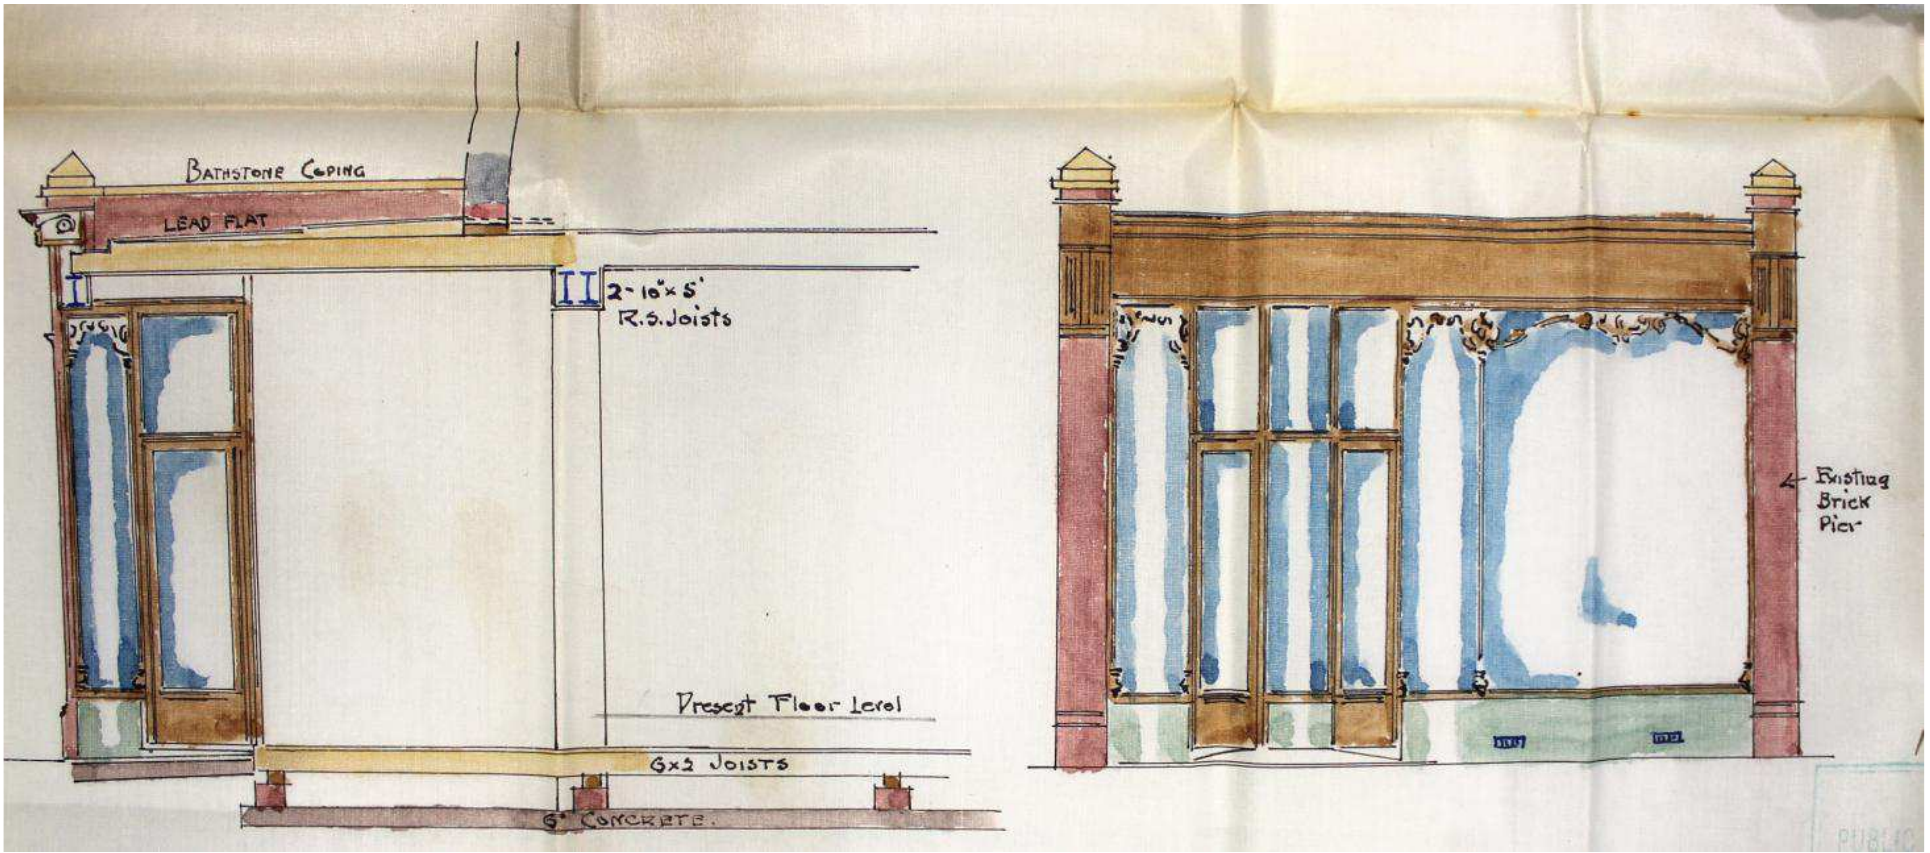 BATHSTONE COPING
LEAD FLAT
2-10"x 5"
R.S. Joists
Present Floor Level
6x2 JOISTS
6" CONCRETE.
Existing
Brick
Pier
PUBLIC